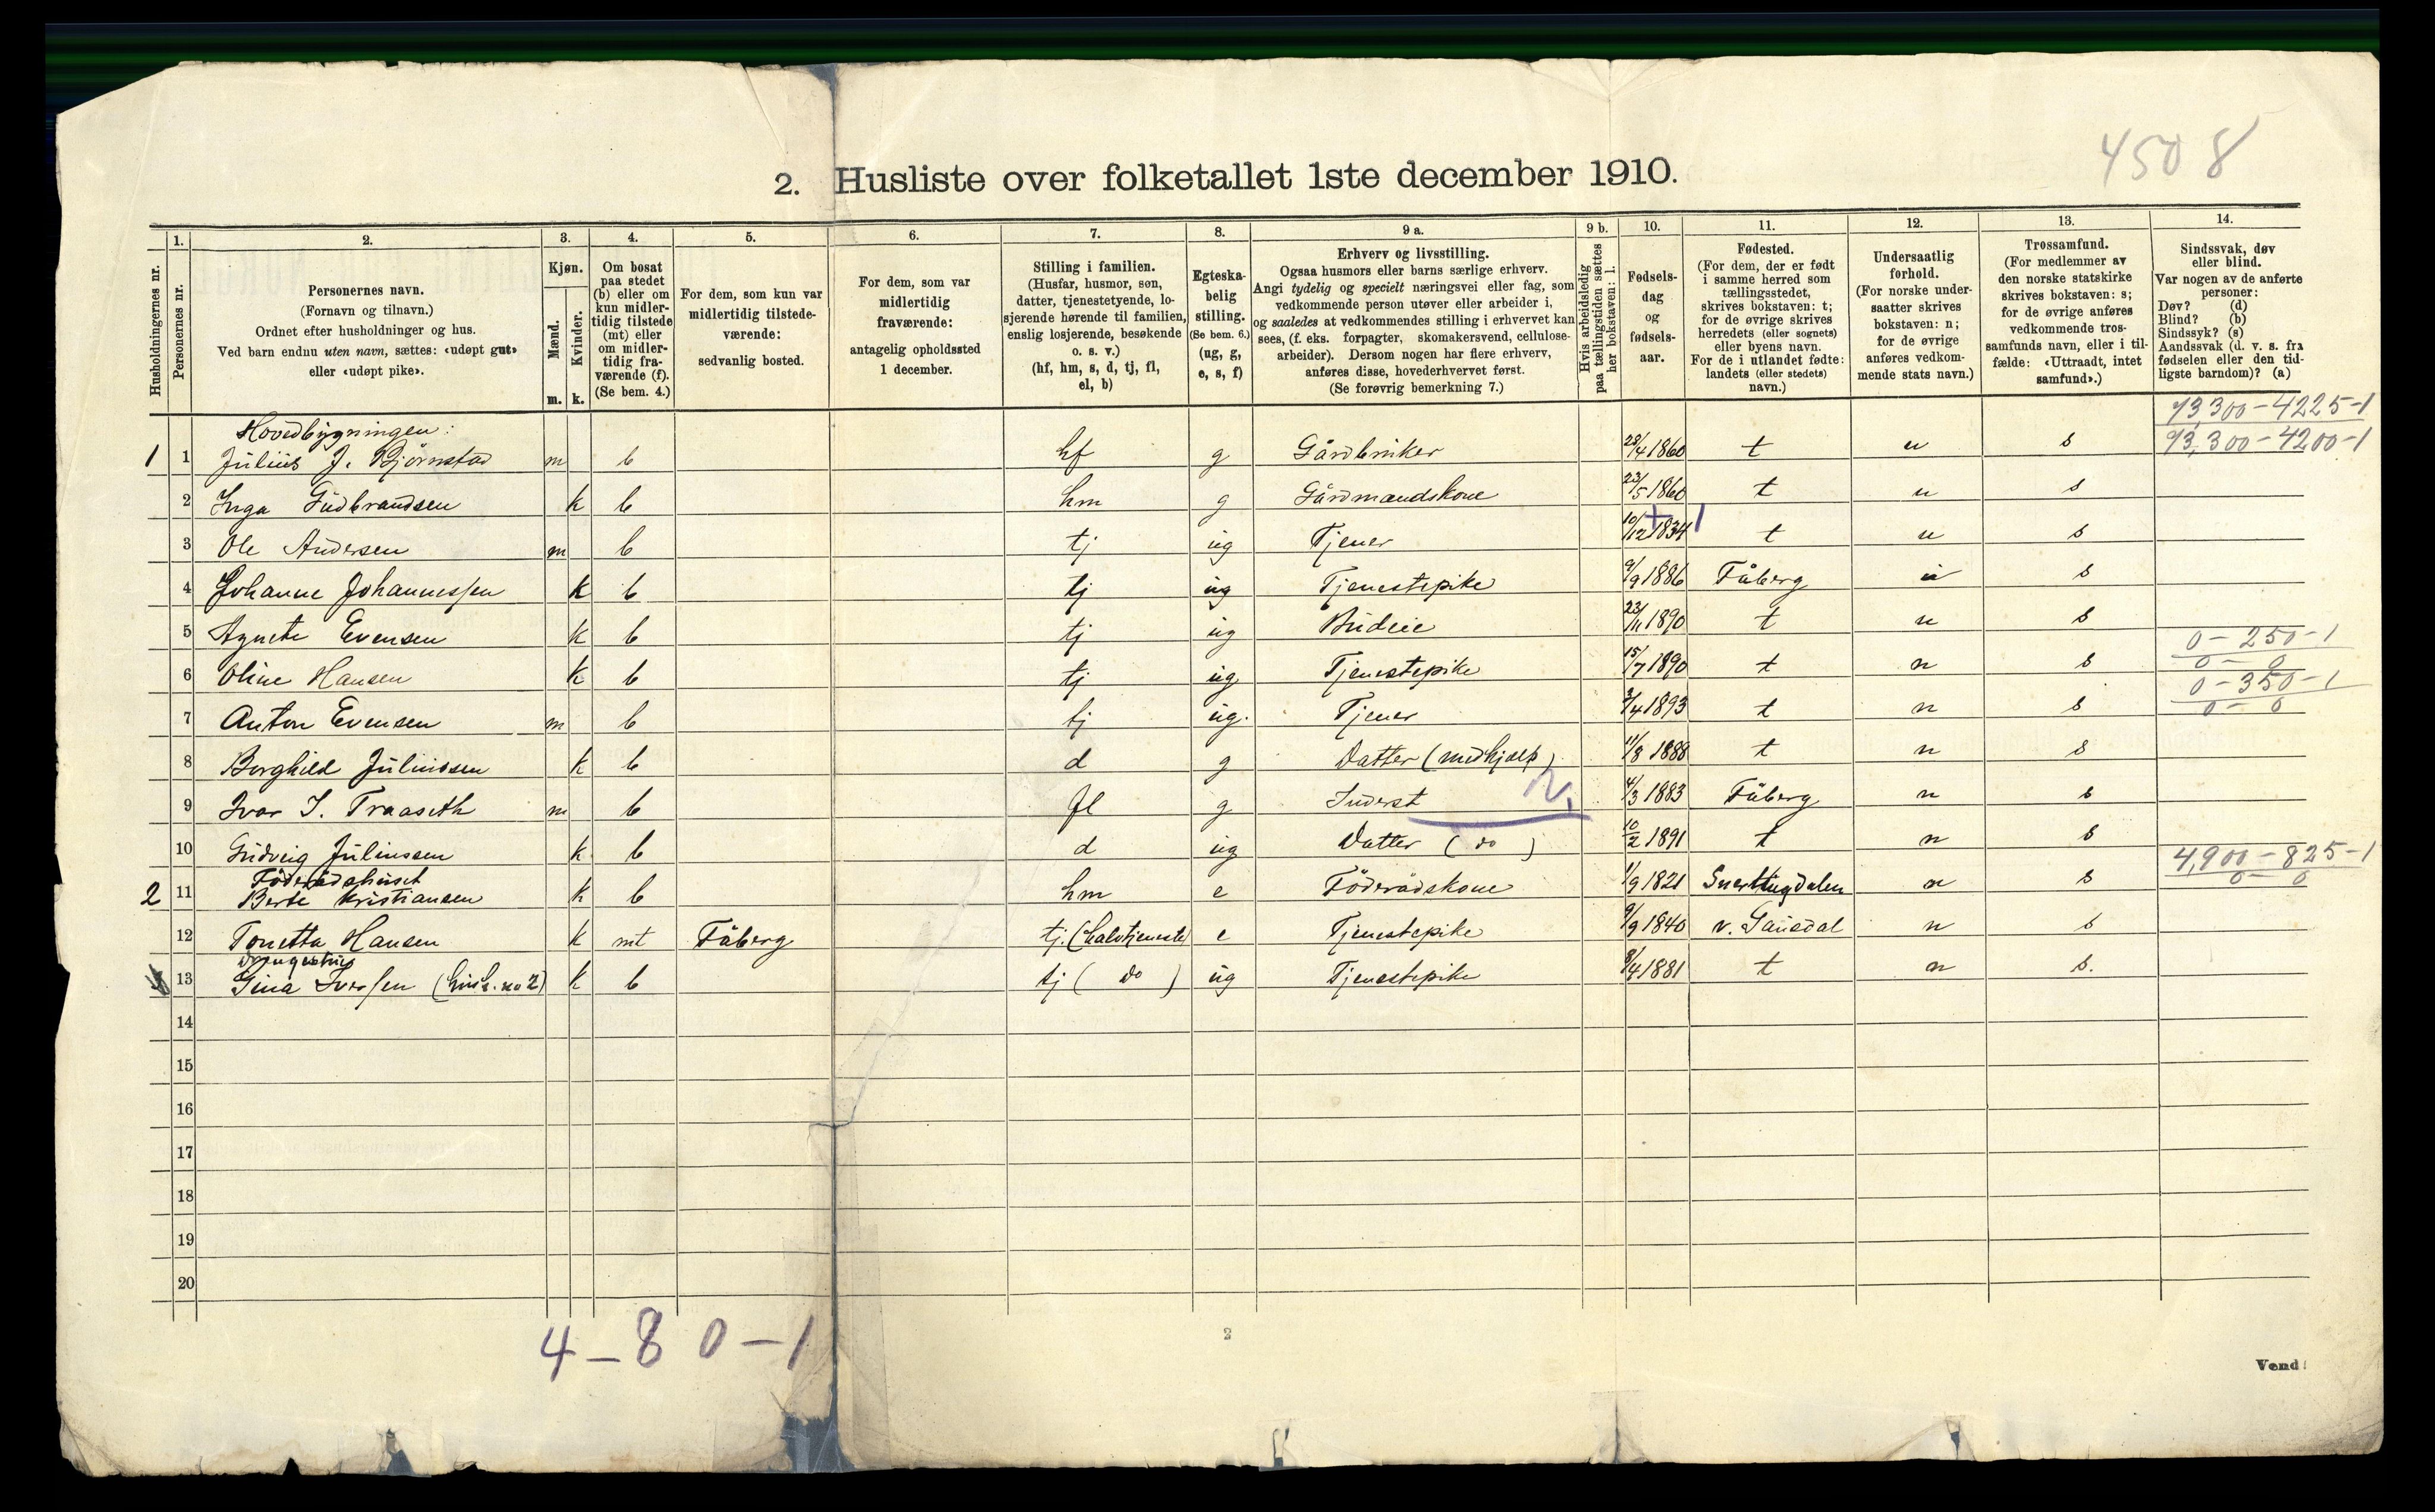 4508
2. Husliste over folketallet 1ste december 1910.
Husholdningernes nr.
1.
Personernes nr.
2.
Personernes navn.
(Fornavn og tilnavn.)
Ordnet efter husholdninger og hus.
Ved barn endnu uten navn, sættes: «udøpt gut»
eller «udøpt pike».
3.
Kjøn.
Mænd. Kvinder.
m. k.
4.
Om bosat
paa stedet
(b) eller om
kun midler-
tidig tilstede
(mt) eller
om midler-
tidig fra-
værende (f).
(Se bem. 4.)
5.
For dem, som kun var
midlertidig tilstede-
værende:
sedvanlig bosted.
6.
For dem, som var
midlertidig
fraværende:
antagelig opholdssted
1 december.
7.
Stilling i familien.
(Husfar, husmor, søn,
datter, tjenestetyende, lo-
sjerende hørende til familien,
enslig losjerende, besøkende
o. s. v.)
(hf, hm, s, d, tj, fl,
el, b)
8.
Egteska-
belig
stilling.
(Se bem. 6.)
(ug, g,
e, s, f)
9 a.
Erhverv og livsstilling.
Ogsaa husmors eller barns særlige erhverv.
Angi tydelig og specielt næringsvei eller fag, som
vedkommende person utøver eller arbeider i,
og saaledes at vedkommendes stilling i erhvervet kan
sees, (f. eks. forpagter, skomakersvend, cellulose-
arbeider). Dersom nogen har flere erhverv,
anføres disse, hovederhvervet først.
(Se forøvrig bemerkning 7.)
9 b.
Hvis arbeidsledig
paa tællingstiden sættes
her bokstaven: l.
10.
Fødsels-
dag
og
fødsels-
aar.
11.
Fødested.
(For dem, der er født
i samme herred som
tællingsstedet,
skrives bokstaven: t;
for de øvrige skrives
herredets (eller sognets)
eller byens navn.
For de i utlandet fødte:
landets (eller stedets)
navn.)
12.
Undersaatlig
forhold.
(For norske under-
saatter skrives
bokstaven: n;
for de øvrige
anføres vedkom-
mende stats navn.)
13.
Trossamfund.
(For medlemmer av
den norske statskirke
skrives bokstaven: s;
for de øvrige anføres
vedkommende tros-
samfunds navn, eller i til-
fælde: «Uttraadt, intet
samfund».)
14.
Sindssvak, døv
eller blind.
Var nogen av de anførte
personer:
Døv? (d)
Blind? (b)
Sindssyk? (s)
Aandssvak (d. v. s. fra
fødselen eller den tid-
ligste barndom)? (a)
93,300-4225-1
Hovedbygningen:
1 1 Julius J. Bjørnstad m b hf g Gårdbruker 28/4 1860 t n s 93,300-4200-1
2 Inga Gudbrandsen k b hm g Gårdmandskone 23/5 1860 t n s
3 Ole Andersen m b tj ug Tjener 10/12 1834 t n s
4 Johanne Johannessen k b tj ug Tjenestepike 9/9 1886 Fåberg n s
5 Agnete Evensen k b tj ug Budeie 23/11 1890 t n s
0-250-1
6 Oline Hansen k b tj ug Tjenestepike 15/7 1890 t n s 0-0
0-350-1
7 Anton Evensen m b tj ug. Tjener 3/4 1893 t n s 0-0
8 Borghild Juliussen k b d g Datter (medhjælp) 11/8 1888 t n s
9 Ivar I. Traaseth m b fl g Inderst 4/3 1883 Fåberg n s
10 Gudveig Juliussen k b d ug Datter (do) 10/2 1891 t n s
4,900-825-1
Föderådshuset
2 11 Berte Kristiansen k b hm e Föderådskone 1/9 1821 Snertingdalen n s 0-0
12 Tonetta Hansen k mt Fåberg tj. (halvtjeneste) e Tjenestepike 9/9 1840 v. Gausdal n s
13 Gina Iversen (hush. no 2) k b tj (do) ug Tjenestepike 8/4 1881 t n s.
14
15
16
17
18
19
20
4-8 0-1
2
Vend!